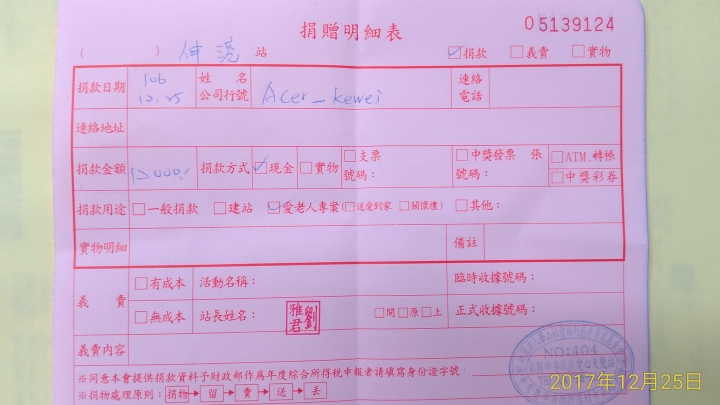 捐贈明細表
O5139124
( ) 站
☑捐款 □義賣 □實物
捐款日期 106 12.25 姓名 公司行號 Acer_Kewei 連絡電話
連絡地址
捐款金額 捐款方式 ☑現金 □實物 □支票 號碼： □中獎發票 張 號碼： □ATM.轉帳 □中獎彩券
捐款用途 □一般捐款 □建站 ☑愛老人專案(□送愛到家 □關懷禮) □其他：
實物明細 備註
義賣 □有成本 活動名稱： 臨時收據號碼：
□無成本 站長姓名： 劉雅君 □開□原□上 正式收據號碼：
義賣內容
※同意本會提供捐款資料予財政部作為年度綜合所得稅申報者請填寫身份證字號：
※捐物處理原則：捐物→留→賣→送→丟
NO:404
2017年12月25日